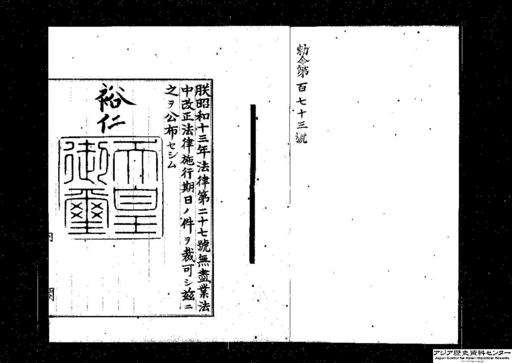 勅令第百七十三號
朕昭和十三年法律第二十七號無盡業法
中改正法律施行期日ノ件ヲ裁可シ茲ニ
之ヲ公布セシム
裕仁
天皇
御璽
内閣
アジア歴史資料センター
Japan Center for Asian Historical Records